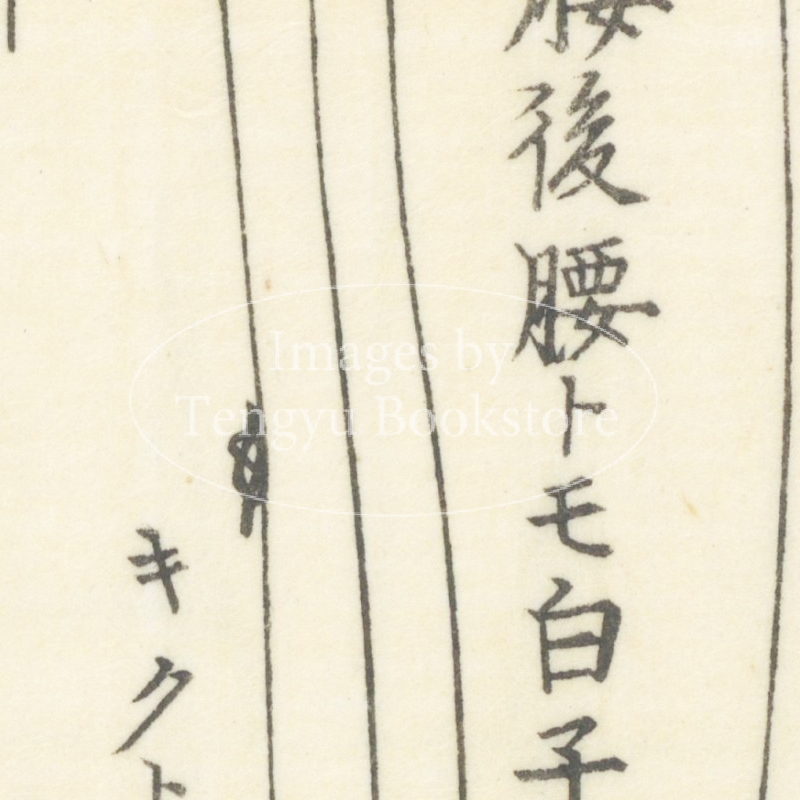 腰後腰トモ白子
キクト
Images by
Tengyu Bookstore